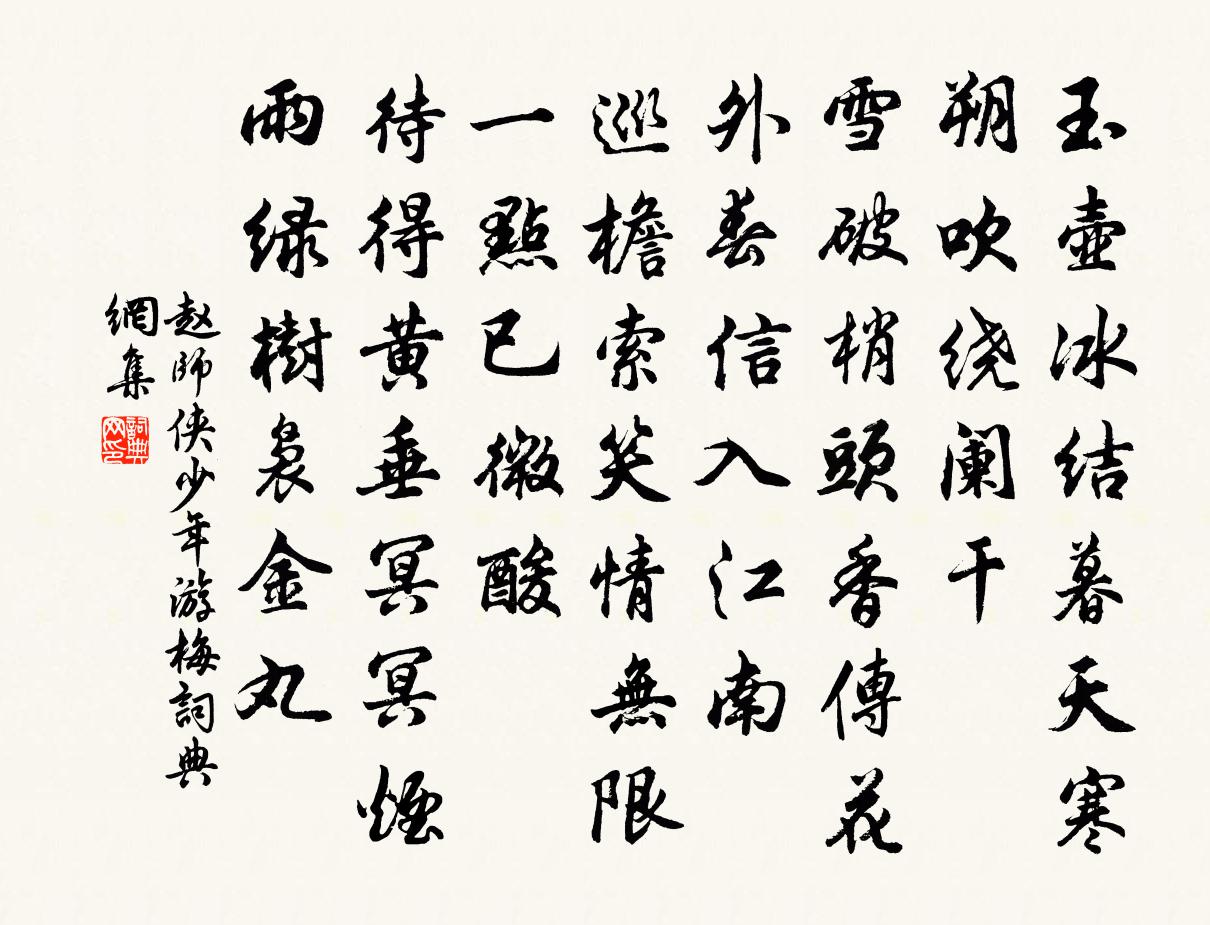 玉壺冰结暮天寒
朔吹绕阑干
雪破梢頭香傳花
外春信入江南
巡檐索笑情無限
一點已微酸
待得黄垂冥冥煙
雨绿樹裊金丸
赵師侠少年游梅詞典
網集
詞典网印